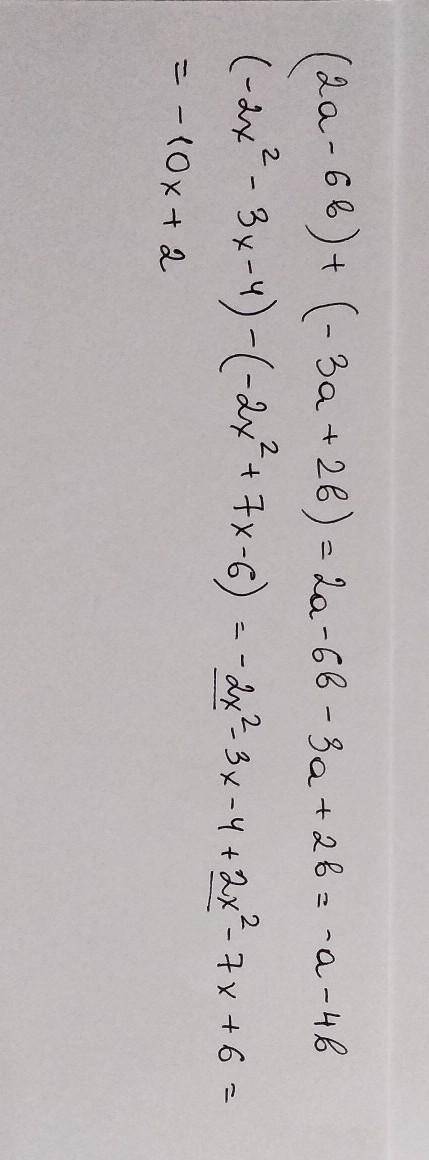 (2a - 6b) + (-3a + 2b) = 2a - 6b - 3a + 2b = -a - 4b
(-2x² - 3x - 4) - (-2x² + 7x - 6) = -2x² - 3x - 4 + 2x² - 7x + 6 =
= -10x + 2